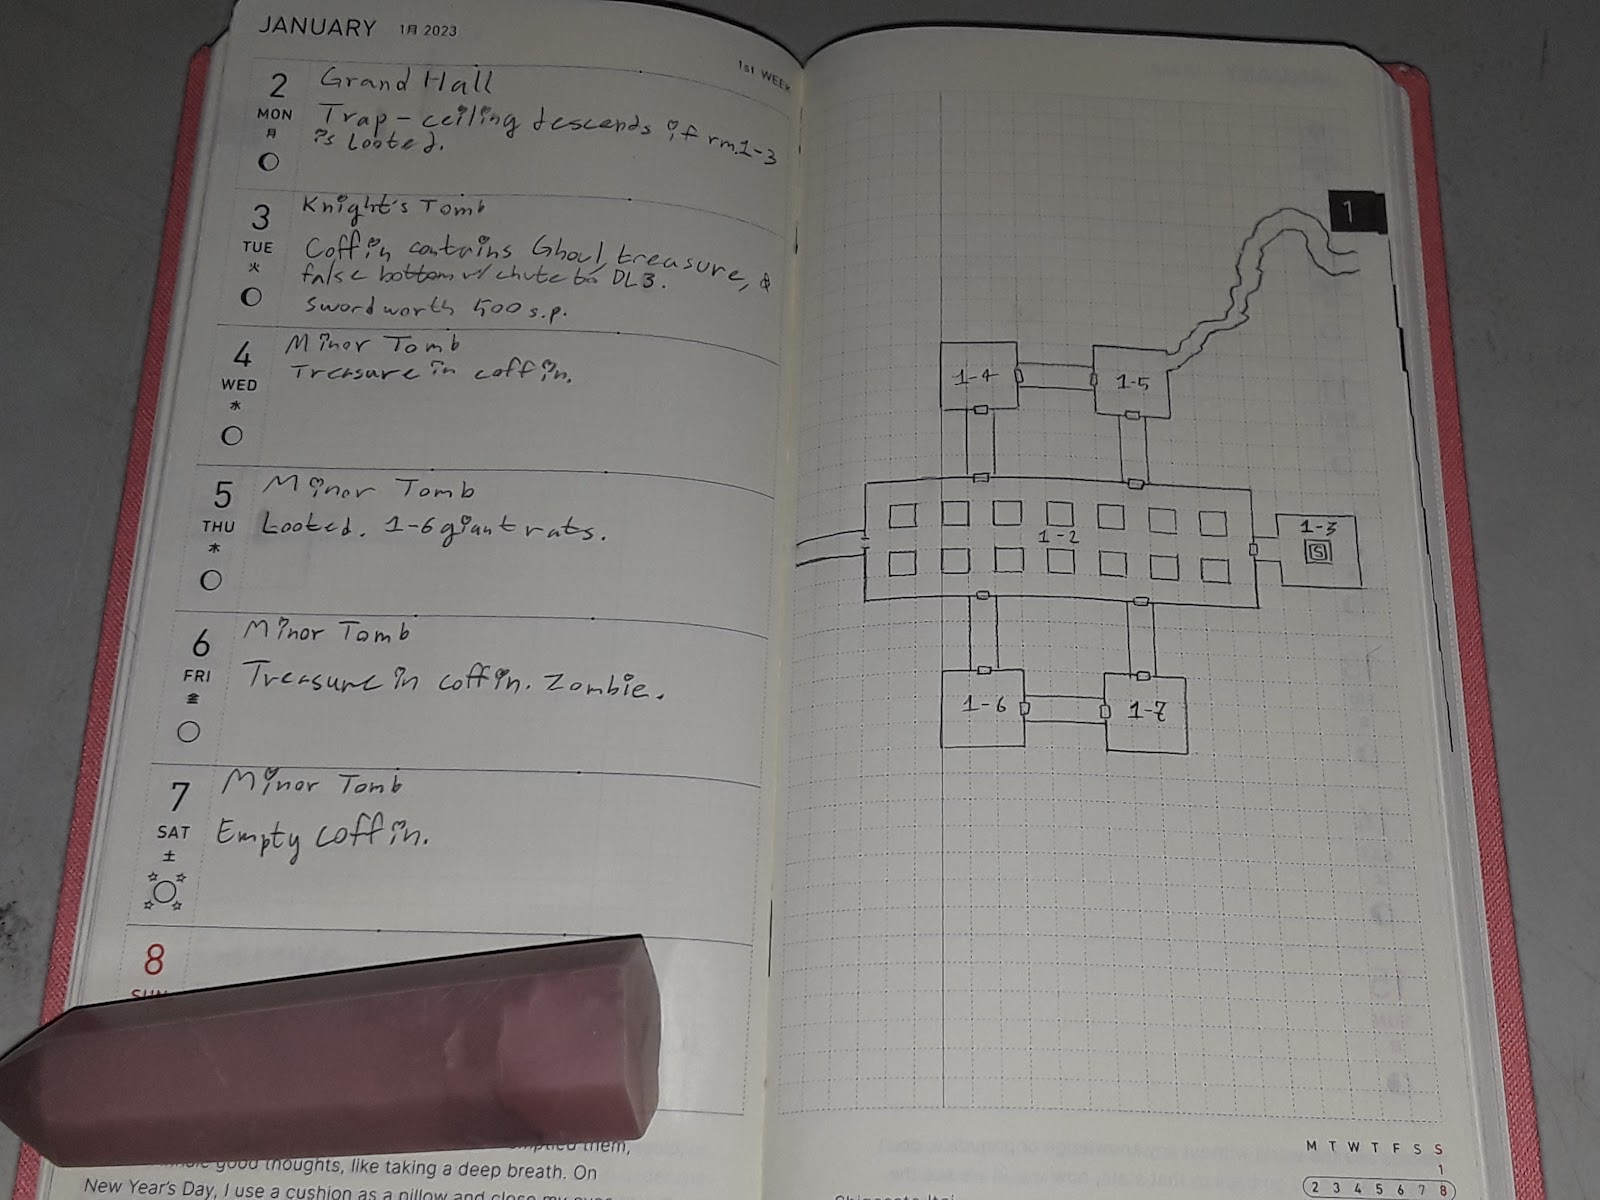 JANUARY 1月 2023
1st WEEK
2
MON
月
Grand Hall
Trap - ceiling descends if rm.1-3
is Looted.
3
TUE
火
Knight's Tomb
Coffin contains Ghoul, treasure, &
false bottom w/ chute to DL3.
Sword worth 500 s.p.
4
WED
水
Minor Tomb
Treasure in coffin.
5
THU
木
Minor Tomb
Looted. 1-6 giant rats.
6
FRI
金
Minor Tomb
Treasure in coffin. Zombie.
7
SAT
土
Minor Tomb
Empty coffin.
8
SUN
them,
good thoughts, like taking a deep breath. On
New Year's Day, I use a cushion as a pillow and close my
1
1-4
1-5
1-2
1-3
S
1-6
1-7
M T W T F S S
1
2 3 4 5 6 7 8